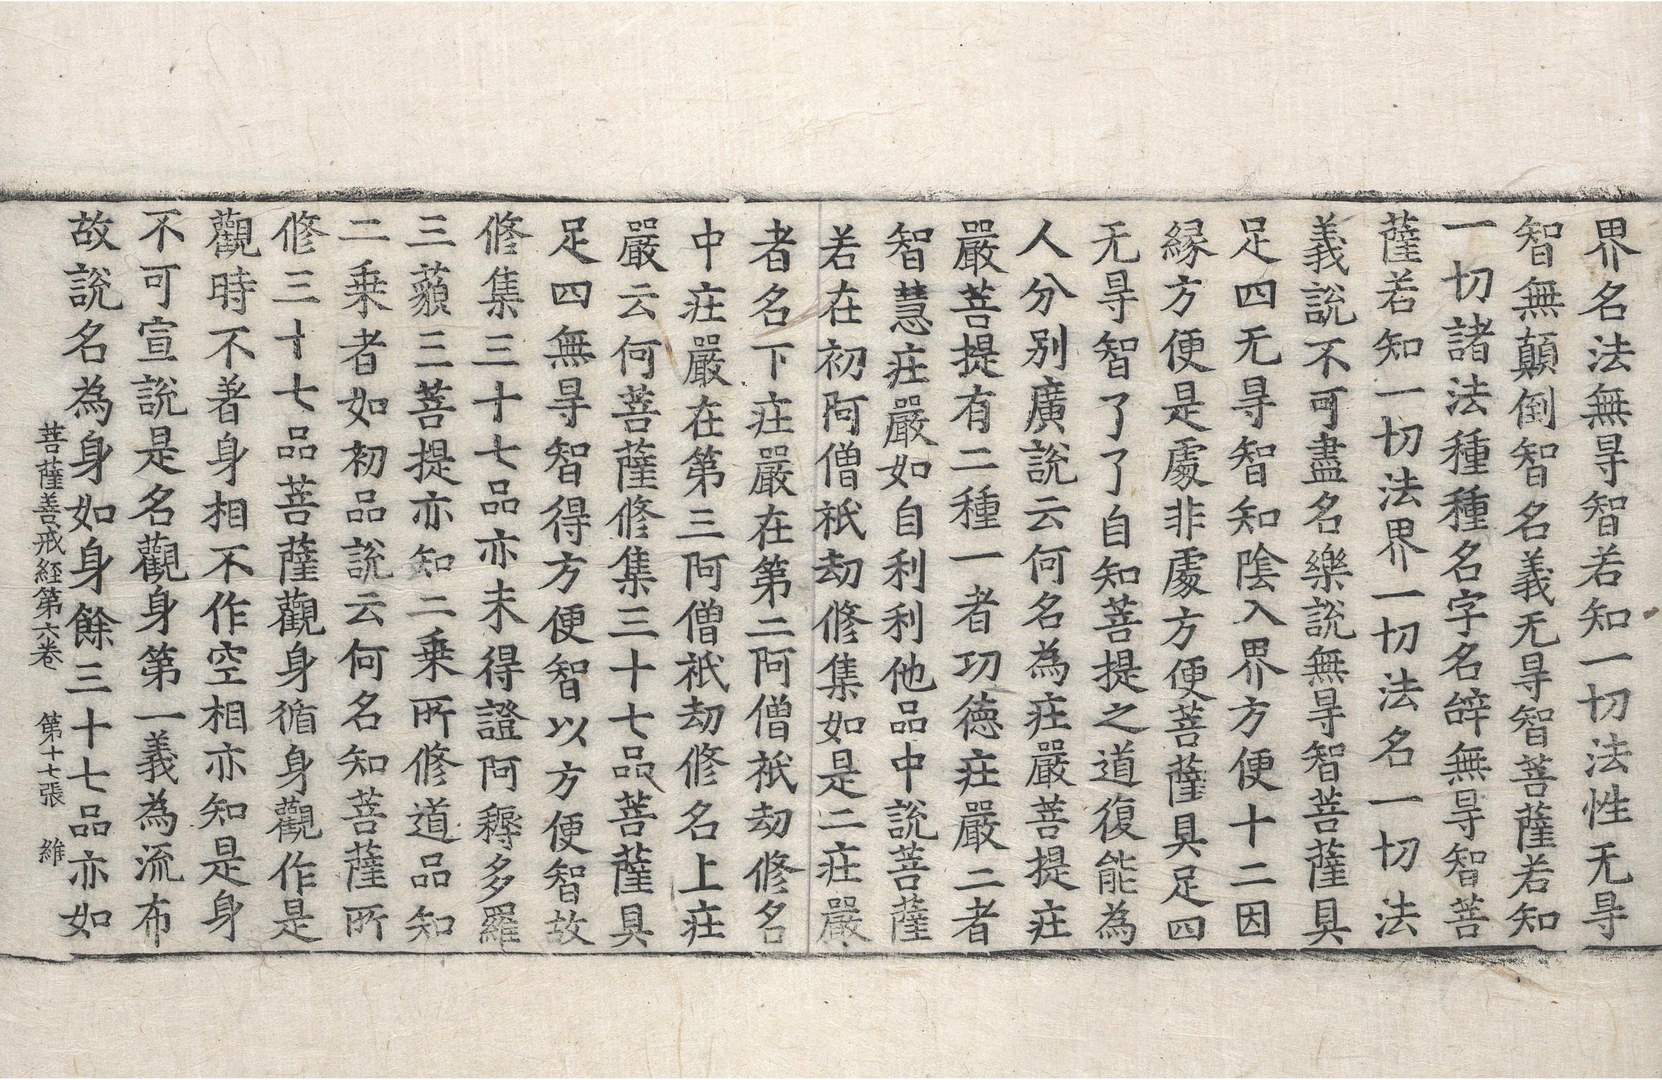 界名法無㝵智若知一切法性无㝵
智無顛倒智名義无㝵智菩薩若知
一切諸法種種名字名辝無㝵智菩
薩若知一切法界一切法名一切法
義說不可盡名樂說無㝵智菩薩具
足四无㝵智知陰入界方便十二因
縁方便是處非處方便菩薩具足四
无㝵智了了自知菩提之道復能為
人分別廣說云何名為疘嚴菩提疘
嚴菩提有二種一者功德疘嚴二者
智慧疘嚴如自利利他品中說菩薩
若在初阿僧祇劫修集如是二疘嚴
者名下疘嚴在第二阿僧祇劫修名
中疘嚴在第三阿僧祇劫修名上疘
嚴云何菩薩修集三十七品菩薩具
足四無㝵智得方便智以方便智故
修集三十七品亦未得證阿耨多羅
三藐三菩提亦知二乗所修道品知
二乗者如初品說云何名知菩薩所
修三十七品菩薩觀身循身觀作是
觀時不著身相不作空相亦知是身
不可宣說是名觀身第一義為流布
故說名為身如身餘三十七品亦如
菩薩善戒經第六卷 第十七張 維